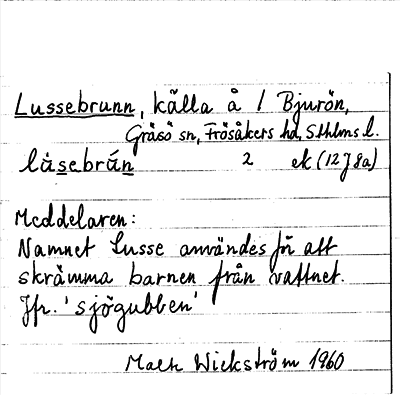 Lussebrunn, källa å / Bjurön,
Gräsö sn, Frösåkers hd, Sthlms l.
låsebrún 2 ek (12J8a)
Meddelaren:
Namnet Lusse användes för att
skrämma barnen från vattnet.
Jfr. 'sjögubben'
Wickström 1960